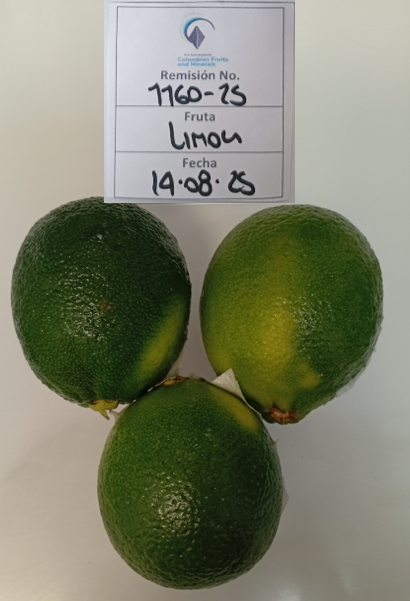 Colombian Fruits
and Minerals
Remisión No.
1160-25
Fruta
Limon
Fecha
14.08.25